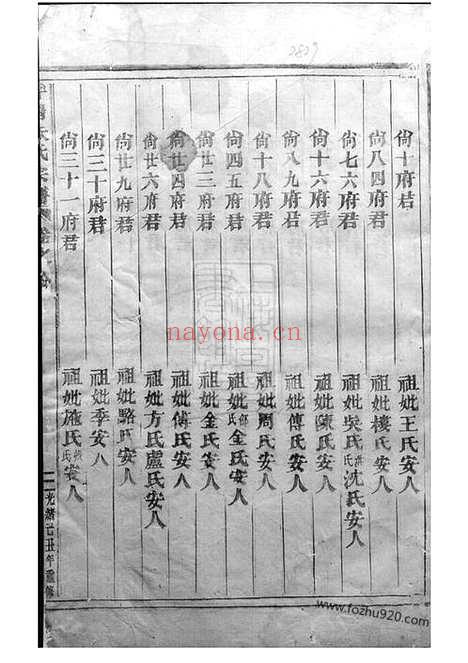 2829
尙十府君 祖妣王氏安人
尙八四府君 祖妣樓氏安人
尙七六府君 祖妣吳氏洪氏沈氏安人
尙十六府君 祖妣陳氏安人
尙八九府君 祖妣傅氏安人
尙十八府君 祖妣周氏安人
尙四五府君 祖妣氏金氏安人
尙廿四府君 祖妣金氏安人
尙廿四府君 祖妣傅氏安人
尙廿六府君 祖妣方氏盧氏安人
尙廿九府君 祖妣駱氏安人
尙三十府君 祖妣李安人
尙三十一府君 祖妣施氏氏安人
氏宗譜
光緒己丑年重修
nayona.cn
www.fozhu920.com